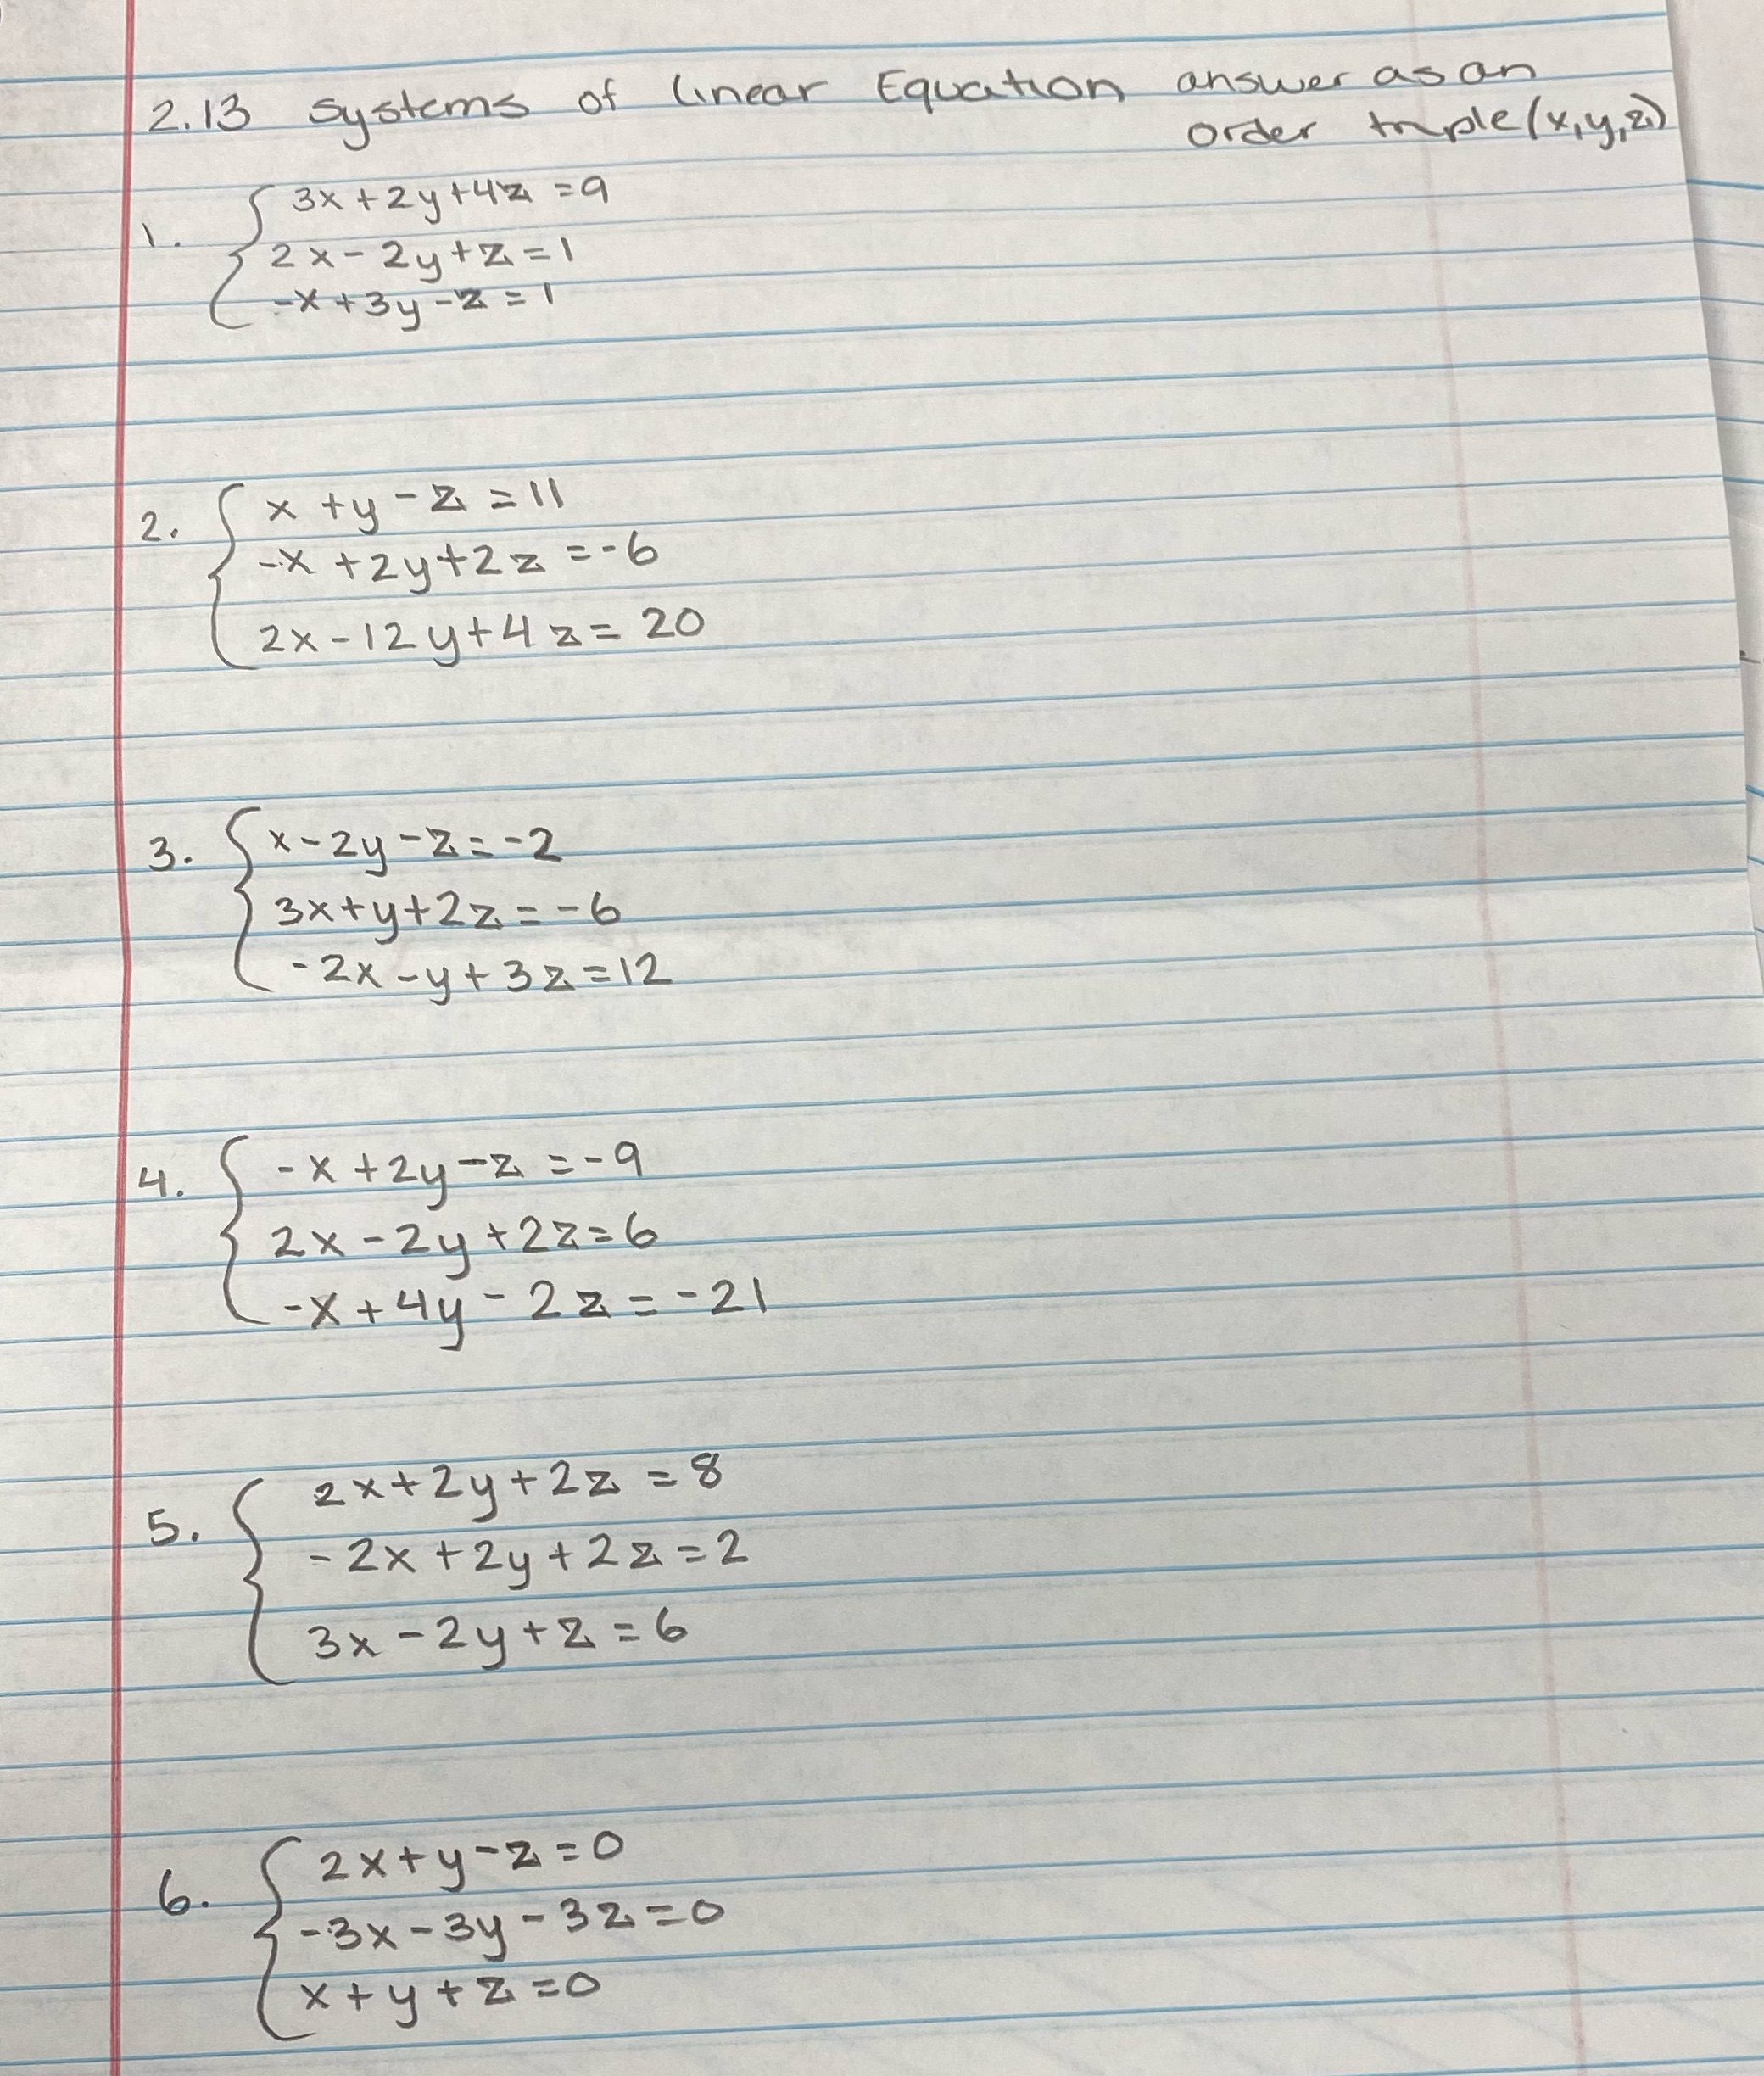 2.13 systems of linear Equation answer as an
order triple (x,y,z)
1. 3x+2y+4z=9
2x-2y+z=1
-x+3y-z=1
2. x+y-z=11
-x+2y+2z=-6
2x-12y+4z=20
3. x-2y-z=-2
3x+y+2z=-6
-2x-y+3z=12
4. -x+2y-z=-9
2x-2y+2z=6
-x+4y-2z=-21
5. 2x+2y+2z=8
-2x+2y+2z=2
3x-2y+z=6
6. 2x+y-z=0
-3x-3y-3z=0
x+y+z=0